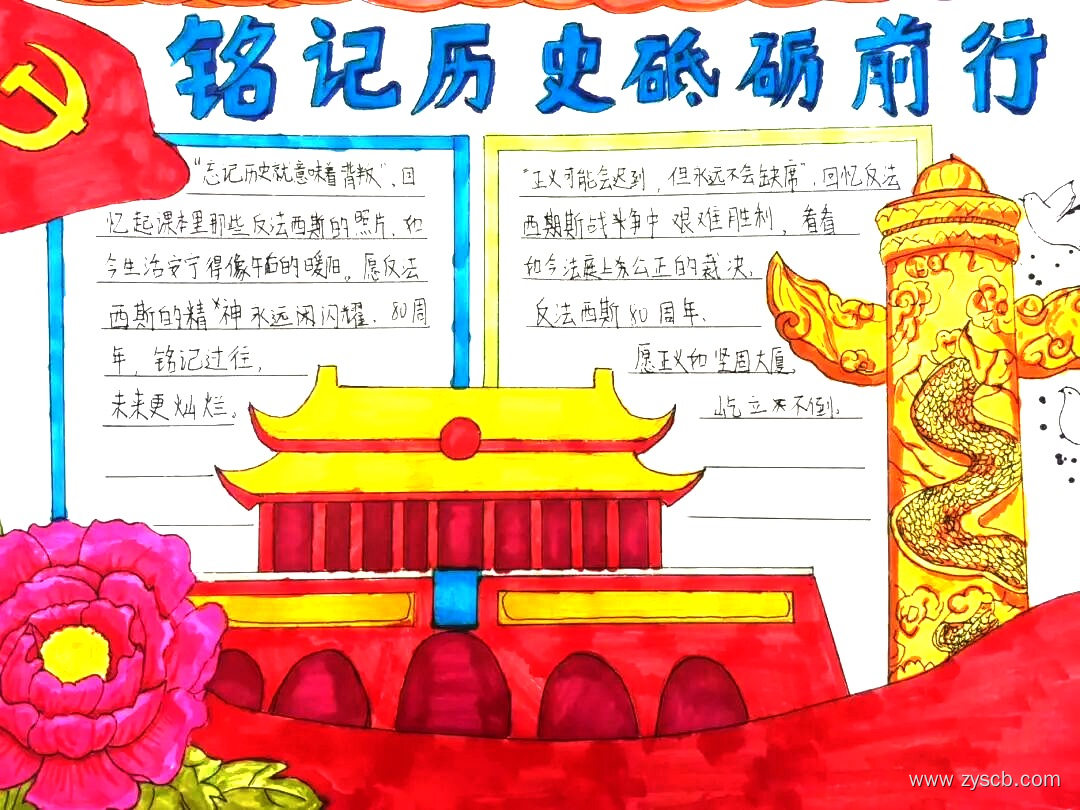 铭记历史砥砺前行
"忘记历史就意味着背叛",回
忆起课本里那些反法西斯的照片,如
今生活安宁得像午后的暖阳。愿反法
西斯的精神永远闪闪耀。80周
年,铭记过往,
未来更灿烂。
"正义可能会迟到,但永远不会缺席",回忆反法
西期斯战争中艰难胜利,看看
如今法庭上务公正的裁决,
反法西斯80周年,
愿正义如坚固大厦,
屹立不倒。
www.zyscb.com